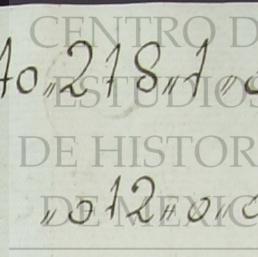 CENTRO D
40〃218〃1〃
ESTUDIOS
DE HISTOR
〃012〃0〃
DE MEXIC